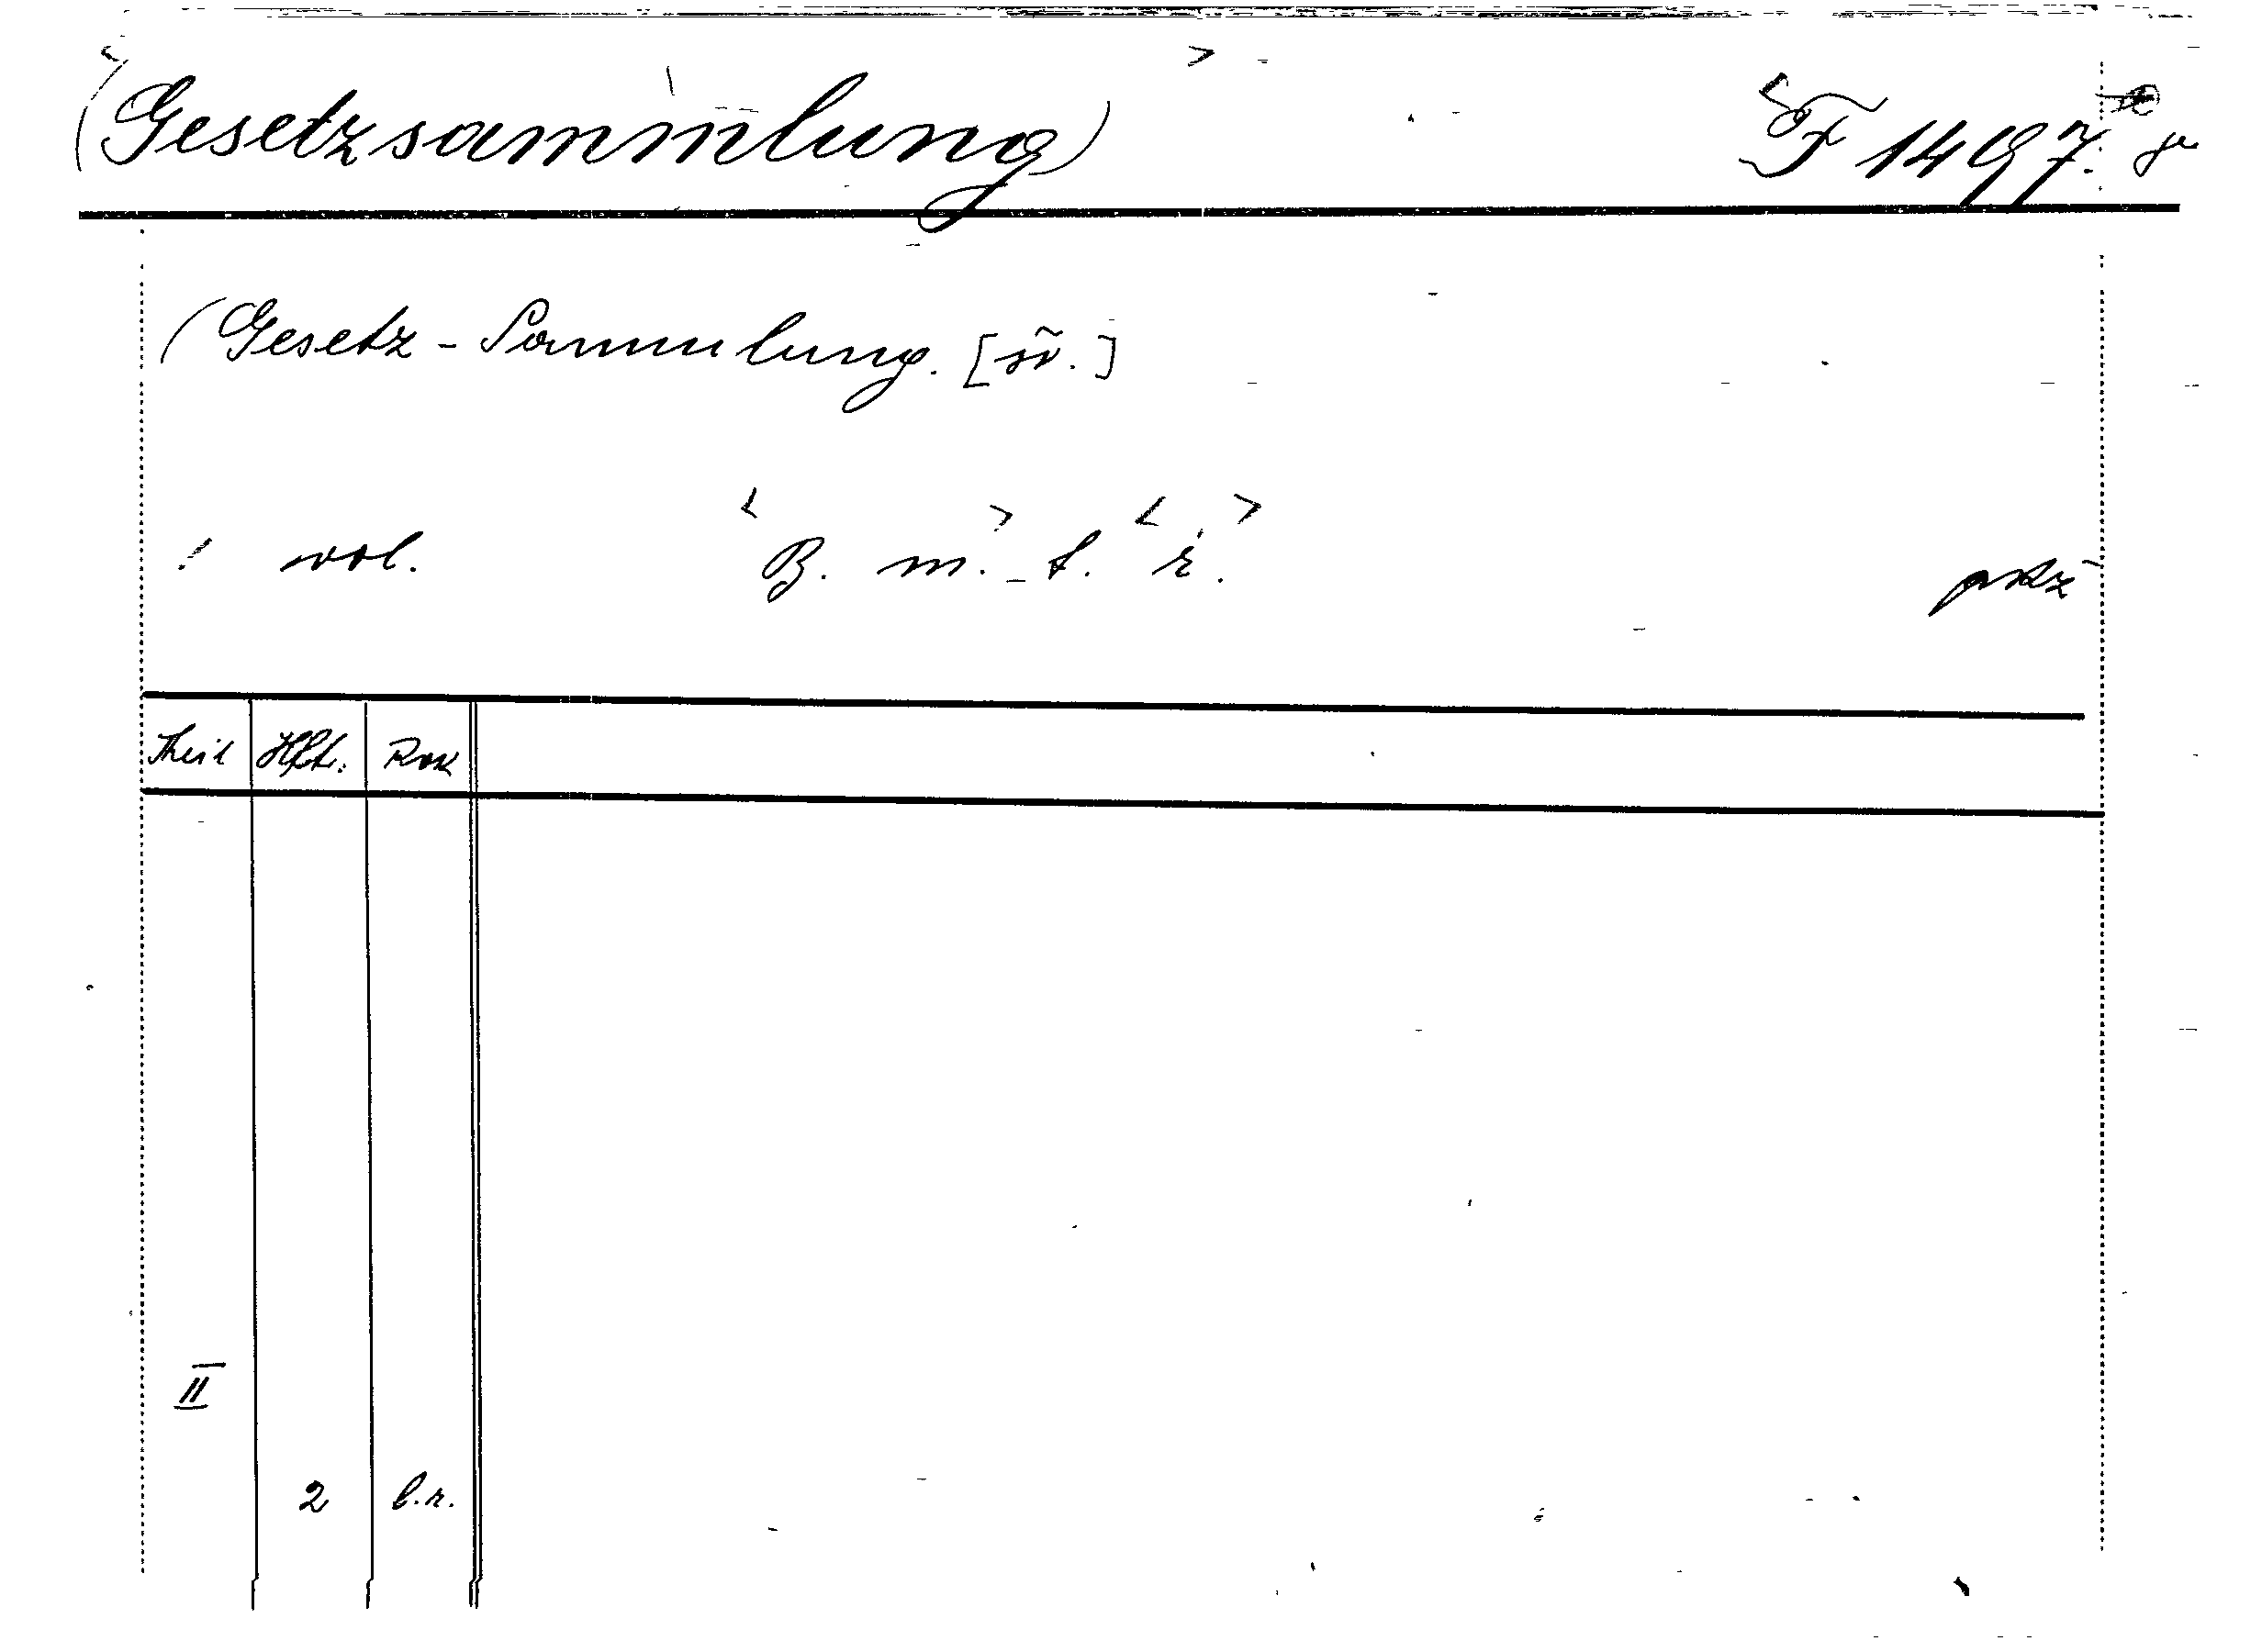 (Gesetzsammlung) F 1497.
(Gesetz-Sammlung. [sv.]
! vol. <B. m.> - t. <r.>
Theil Hft. Rok
II
2 b.r.